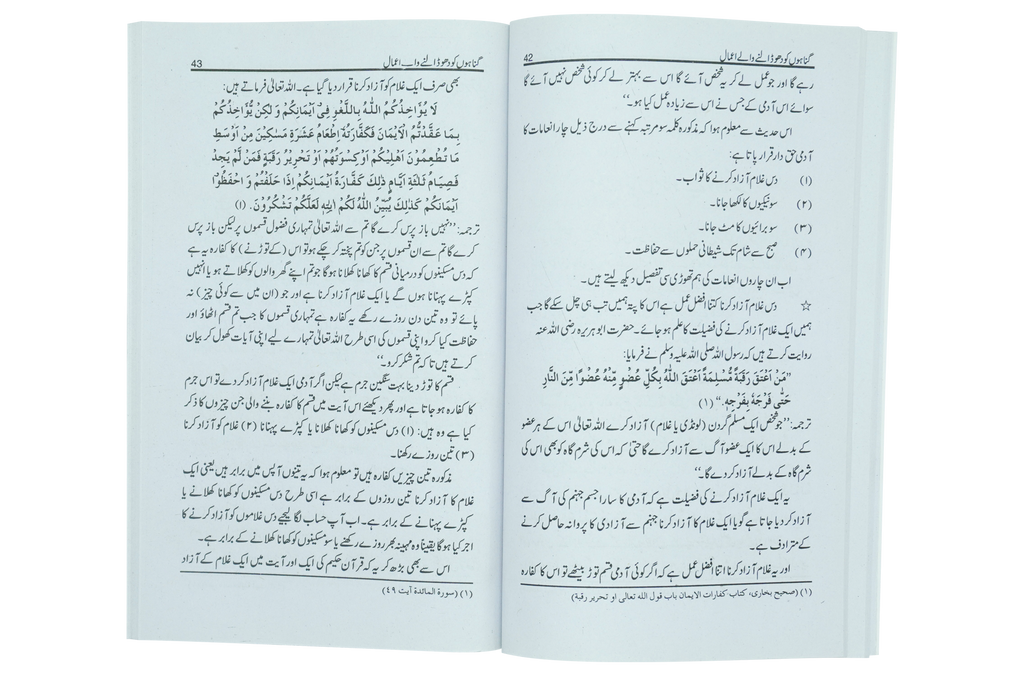 42 گناہوں کو دھو ڈالنے والے اعمال
رہے گا اور جو عمل لے کر یہ شخص آئے گا اس سے بہتر لے کر کوئی شخص نہیں آئے گا
سوائے اس آدمی کے جس نے اس سے زیادہ عمل کیا ہو۔‘‘
اس حدیث سے معلوم ہوا کہ مذکورہ کلمہ سو مرتبہ کہنے سے درج ذیل چار انعامات کا
آدمی حق دار قرار پاتا ہے:
(۱) دس غلام آزاد کرنے کا ثواب۔
(۲) سو نیکیوں کا لکھا جانا۔
(۳) سو برائیوں کا مٹ جانا۔
(۴) صبح سے شام تک شیطانی حملوں سے حفاظت۔
اب ان چاروں انعامات کی ہم تھوڑی سی تفصیل دیکھ لیتے ہیں۔
☆ دس غلام آزاد کرنا کتنا افضل عمل ہے اس کا پتہ ہمیں تب ہی چل سکے گا جب
ہمیں ایک غلام آزاد کرنے کی فضیلت کا علم ہو جائے۔ حضرت ابو ہریرہ رضی اللہ عنہ
روایت کرتے ہیں کہ رسول اللہ صلی اللہ علیہ وسلم نے فرمایا:
”مَنْ اَعْتَقَ رَقَبَةً مُّسْلِمَةً اَعْتَقَ اللّٰهُ بِكُلِّ عُضْوٍ مِّنْهُ عُضْوًا مِّنَ النَّارِ
حَتّٰى فَرْجَهٗ بِفَرْجِهٖ.“ (۱)
ترجمہ: ’’جو شخص ایک مسلم گردن (لونڈی یا غلام) آزاد کرے اللہ تعالیٰ اس کے ہر عضو
کے بدلے اس کا ایک عضو آگ سے آزاد کرے گا حتیٰ کہ اس کی شرم گاہ کو بھی اس کی
شرم گاہ کے بدلے آزاد کر دے گا۔‘‘
یہ ایک غلام آزاد کرنے کی فضیلت ہے کہ آدمی کا سارا جسم جہنم کی آگ سے
آزاد کر دیا جاتا ہے گویا ایک غلام کا آزاد کرنا جہنم سے آزادی کا پروانہ حاصل کرنے
کے مترادف ہے۔
اور یہ غلام آزاد کرنا اتنا افضل عمل ہے کہ اگر کوئی آدمی قسم توڑ بیٹھے تو اس کا کفارہ
(۱) (صحیح بخاری، کتاب کفارات الایمان باب قول الله تعالی او تحریر رقبة)
43 گناہوں کو دھو ڈالنے والے اعمال
بھی صرف ایک غلام کو آزاد کرنا قرار دیا گیا ہے۔ اللہ تعالیٰ فرماتے ہیں:
لَا يُؤَاخِذُكُمُ اللّٰهُ بِاللَّغْوِ فِىْٓ اَيْمَانِكُمْ وَ لٰكِنْ يُّؤَاخِذُكُمْ
بِمَا عَقَّدْتُّمُ الْاَيْمَانَ فَكَفَّارَتُهٗٓ اِطْعَامُ عَشَرَةِ مَسٰكِيْنَ مِنْ اَوْسَطِ
مَا تُطْعِمُوْنَ اَهْلِيْكُمْ اَوْ كِسْوَتُهُمْ اَوْ تَحْرِيْرُ رَقَبَةٍ فَمَنْ لَّمْ يَجِدْ
فَصِيَامُ ثَلٰثَةِ اَيَّامٍ ذٰلِكَ كَفَّارَةُ اَيْمَانِكُمْ اِذَا حَلَفْتُمْ وَ احْفَظُوْٓا
اَيْمَانَكُمْ كَذٰلِكَ يُبَيِّنُ اللّٰهُ لَكُمْ اٰيٰتِهٖ لَعَلَّكُمْ تَشْكُرُوْنَ. (۱)
ترجمہ: ’’نہیں باز پرس کرے گا تم سے اللہ تعالیٰ تمہاری فضول قسموں پر لیکن باز پرس
کرے گا تم سے ان قسموں پر جن کو تم پختہ کر چکے ہو تو اس (کے توڑنے) کا کفارہ یہ ہے
کہ دس مسکینوں کو درمیانی قسم کا کھانا کھلانا ہوگا جو تم اپنے گھر والوں کو کھلاتے ہو یا انہیں
کپڑے پہنانا ہوں گے یا ایک غلام آزاد کرنا ہے اور جو (ان میں سے کوئی چیز) نہ
پائے تو وہ تین دن روزے رکھے یہ کفارہ ہے تمہاری قسموں کا جب تم قسم اٹھاؤ اور
حفاظت کیا کرو اپنی قسموں کی اسی طرح اللہ تعالیٰ تمہارے لیے اپنی آیات کھول کر بیان
کرتے ہیں تا کہ تم شکر کرو۔‘‘
قسم کا توڑ دینا بہت سنگین جرم ہے لیکن اگر آدمی ایک غلام آزاد کر دے تو اس جرم
کا کفارہ ہو جاتا ہے اور پھر دیکھئے اس آیت میں قسم کا کفارہ بننے والی جن چیزوں کا ذکر
کیا ہے وہ ہیں: (۱) دس مسکینوں کو کھانا کھلانا یا کپڑے پہنانا (۲) غلام کو آزاد کرنا
(۳) تین روزے رکھنا۔
مذکورہ تین چیزیں کفارہ ہیں تو معلوم ہوا کہ یہ تینوں آپس میں برابر ہیں یعنی ایک
غلام کا آزاد کرنا تین روزوں کے برابر ہے اسی طرح دس مسکینوں کو کھانا کھلانے یا
کپڑے پہنانے کے برابر ہے۔ اب آپ حساب لگا لیجیے دس غلاموں کو آزاد کرنے کا
اجر کیا ہوگا یقیناً وہ مہینہ بھر روزے رکھنے یا سو مسکینوں کو کھانا کھلانے کے برابر ہے۔
اس سے بھی بڑھ کر یہ کہ قرآن حکیم کی ایک اور آیت میں ایک غلام کے آزاد
(۱) (سورة المائدة آیت ۴۹)